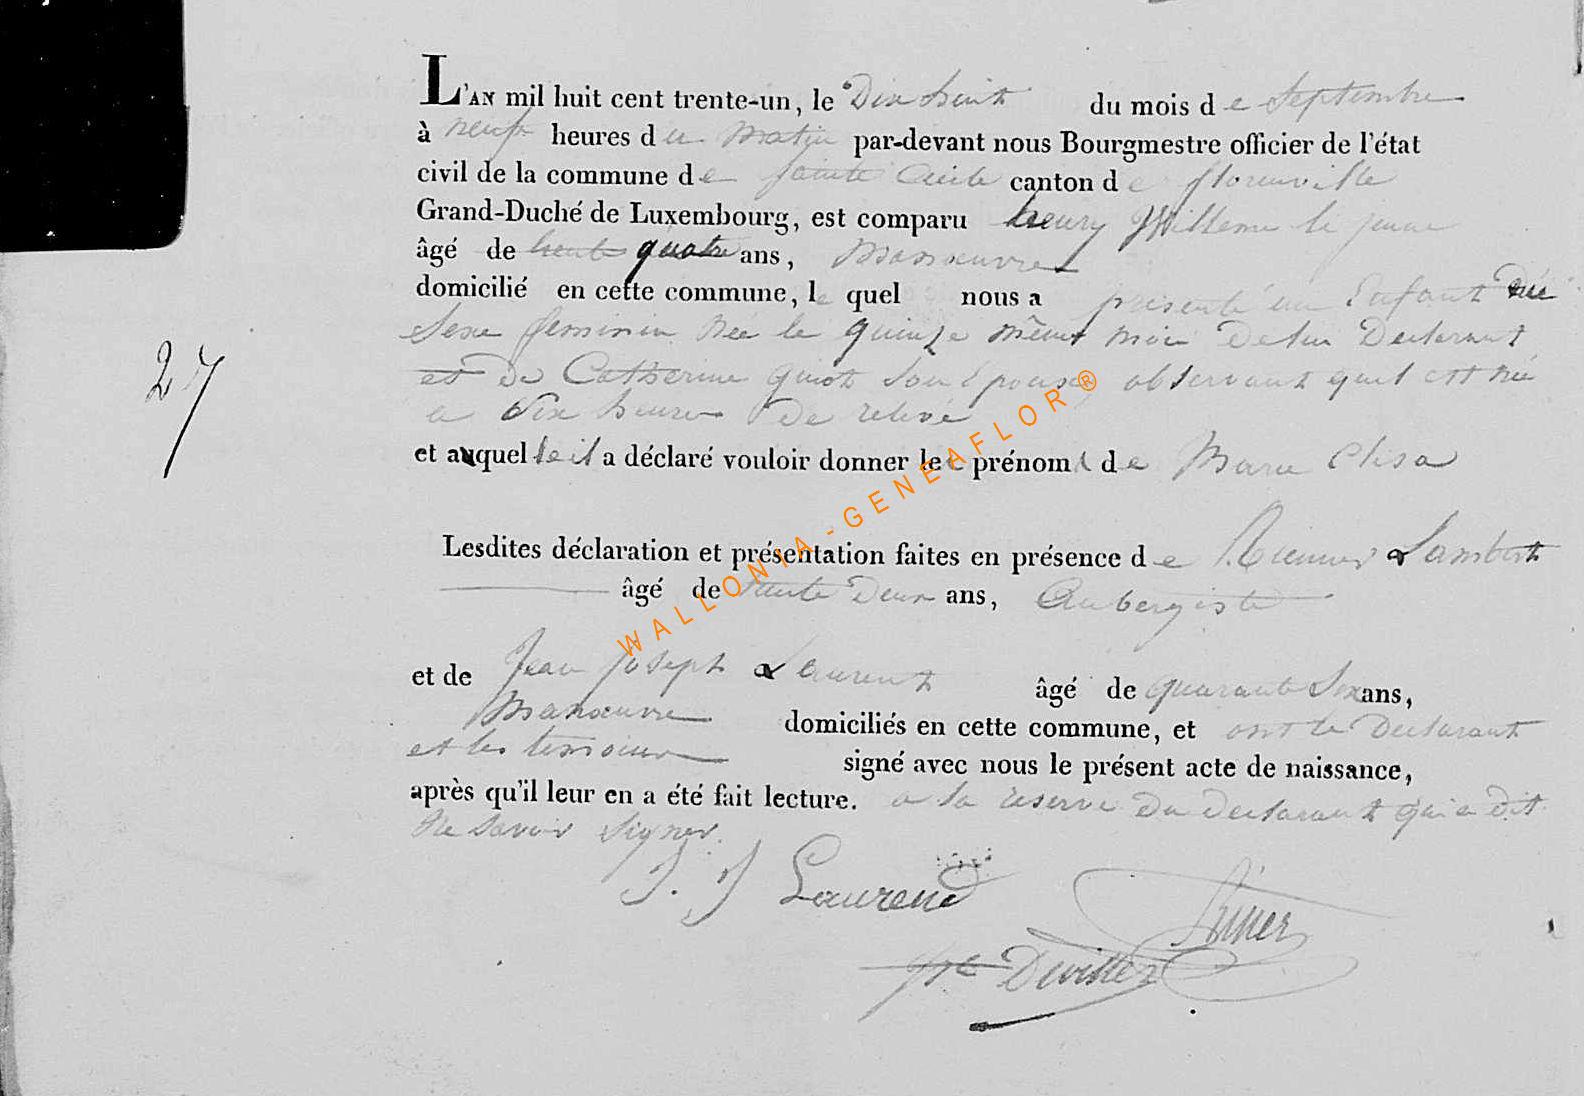 L'AN mil huit cent trente-un, le Dix huit du mois de Septembre
à neuf heures du Matin par-devant nous Bourgmestre officier de l'état
civil de la commune de Sainte Cecile canton de florenville
Grand-Duché de Luxembourg, est comparu henry Willeme le jeune
âgé de trente quatre ans, Manoeuvre
domicilié en cette commune, le quel nous a présenté un Enfant du
27
Sexe feminin Née le quinze même mois De lui Declarant
et De Catherine Guiot Son Epouse, observant quil est né
a Six heures De relevé
et auquel le il a déclaré vouloir donner le prénom de Marie Elisa
Lesdites déclaration et présentation faites en présence de Lambert
âgé de trente Deux ans, Aubergiste
et de Jean Joseph Laurent âgé de quarante Six ans,
Manoeuvre domiciliés en cette commune, et ont le Declarant
et les temoins signé avec nous le présent acte de naissance,
après qu'il leur en a été fait lecture. a la reserve Du declarant qui a dit
Ne Savoir Signer.
J. J Laurend
Devillez
WALLONIA-GENEAFLOR®